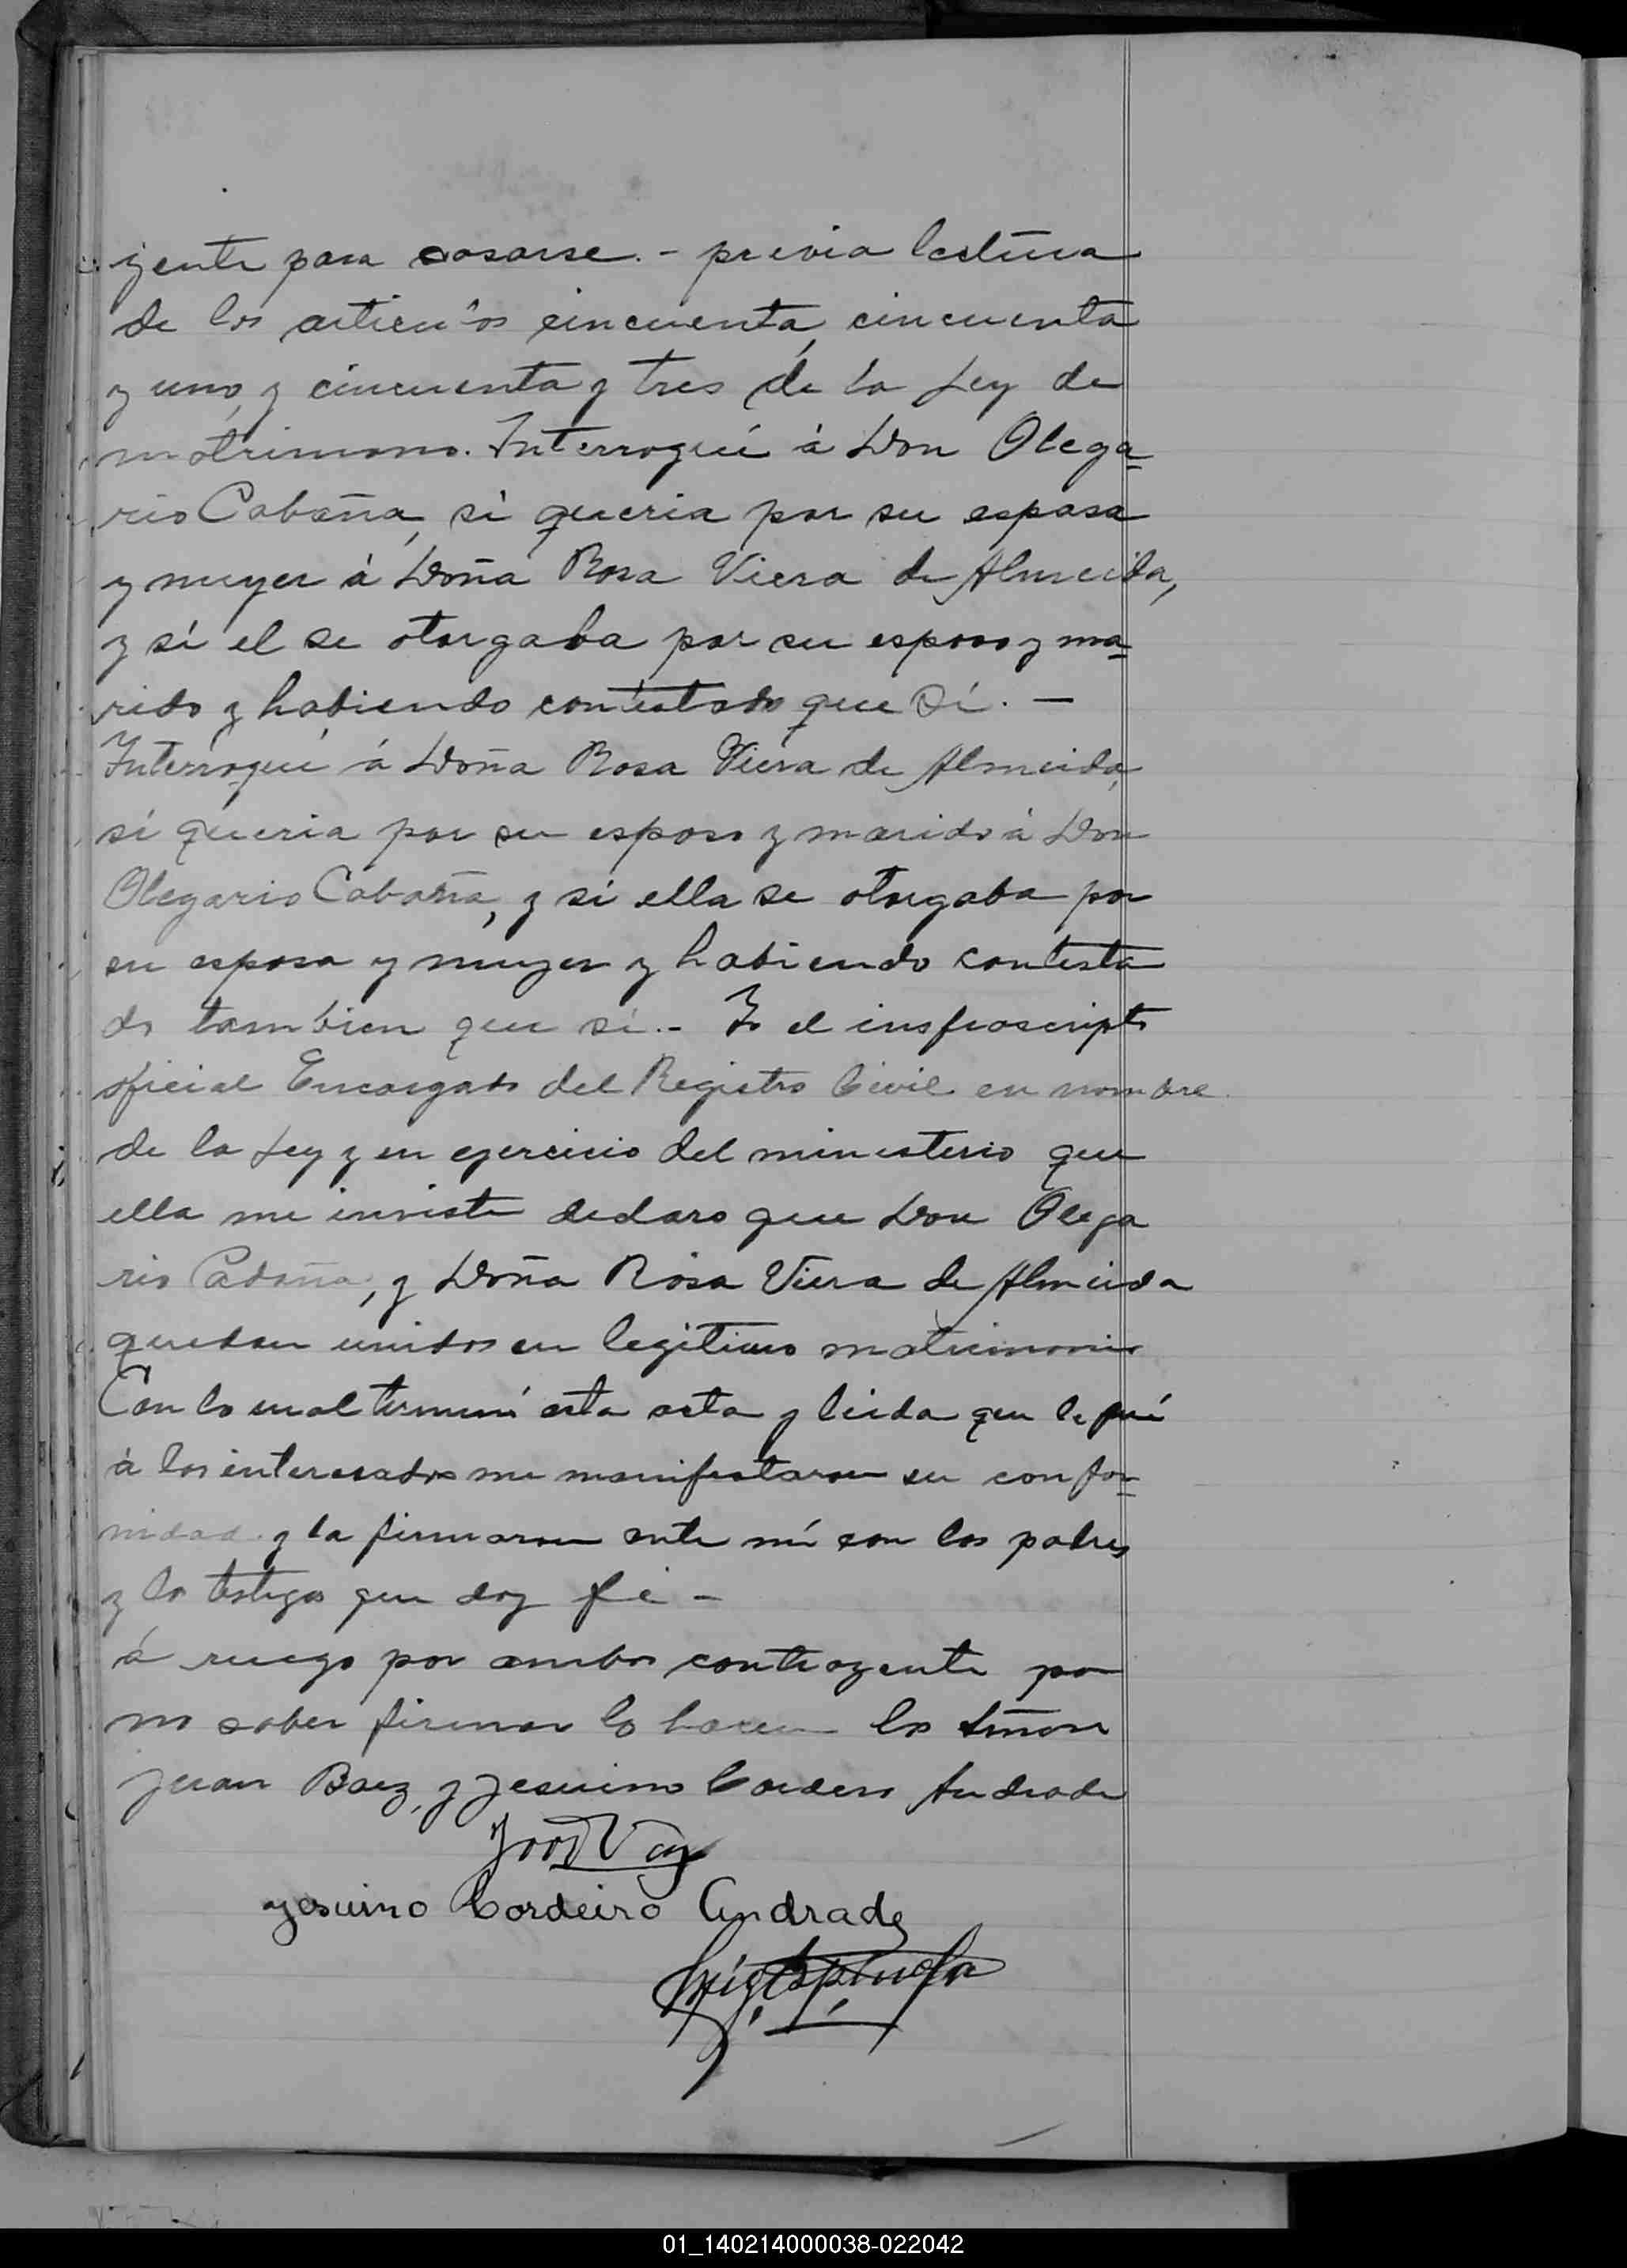 yente para casarse. - previa lectura
de los articulos cincuenta, cincuenta
y uno, y cincuenta y tres de la Ley de
matrimono. Interrogué à Don Olega=
rio Cabaña, si queria por su esposa
y muger à Doña Rosa Viera de Almeida,
y sí el se otorgaba por su esposo y ma=
rido y habiendo contestado que Sí. -
Interrogué á Doña Rosa Viera de Almeida,
si queria por su esposo y marido á Don
Olegario Cabaña, y si ella se otorgaba por
su esposa y muger y habiendo contesta
do tambien que sí. - Yo el insfrascripto
oficial Encargado del Registro Civil en nombre
de la Ley y en ejercicio del ministerio que
ella me inviste declaro que Don Olega
rio Cabaña, y Doña Rosa Viera de Almeida
quedan unidos en legitimo matrimonio
Con lo cual terminé esta acta y leida que le fué
à los interesados me manifestaron su confor=
midad y la firmaron ante mí con los padres
y los testigos que doy fé -
á ruego por ambos contrayente por
no saber firmar lo hacen los Señore
Juan Baez, y Jesuino Cordero Andrade
Jesuino Cordeiro Andrade
01_140214000038-022042